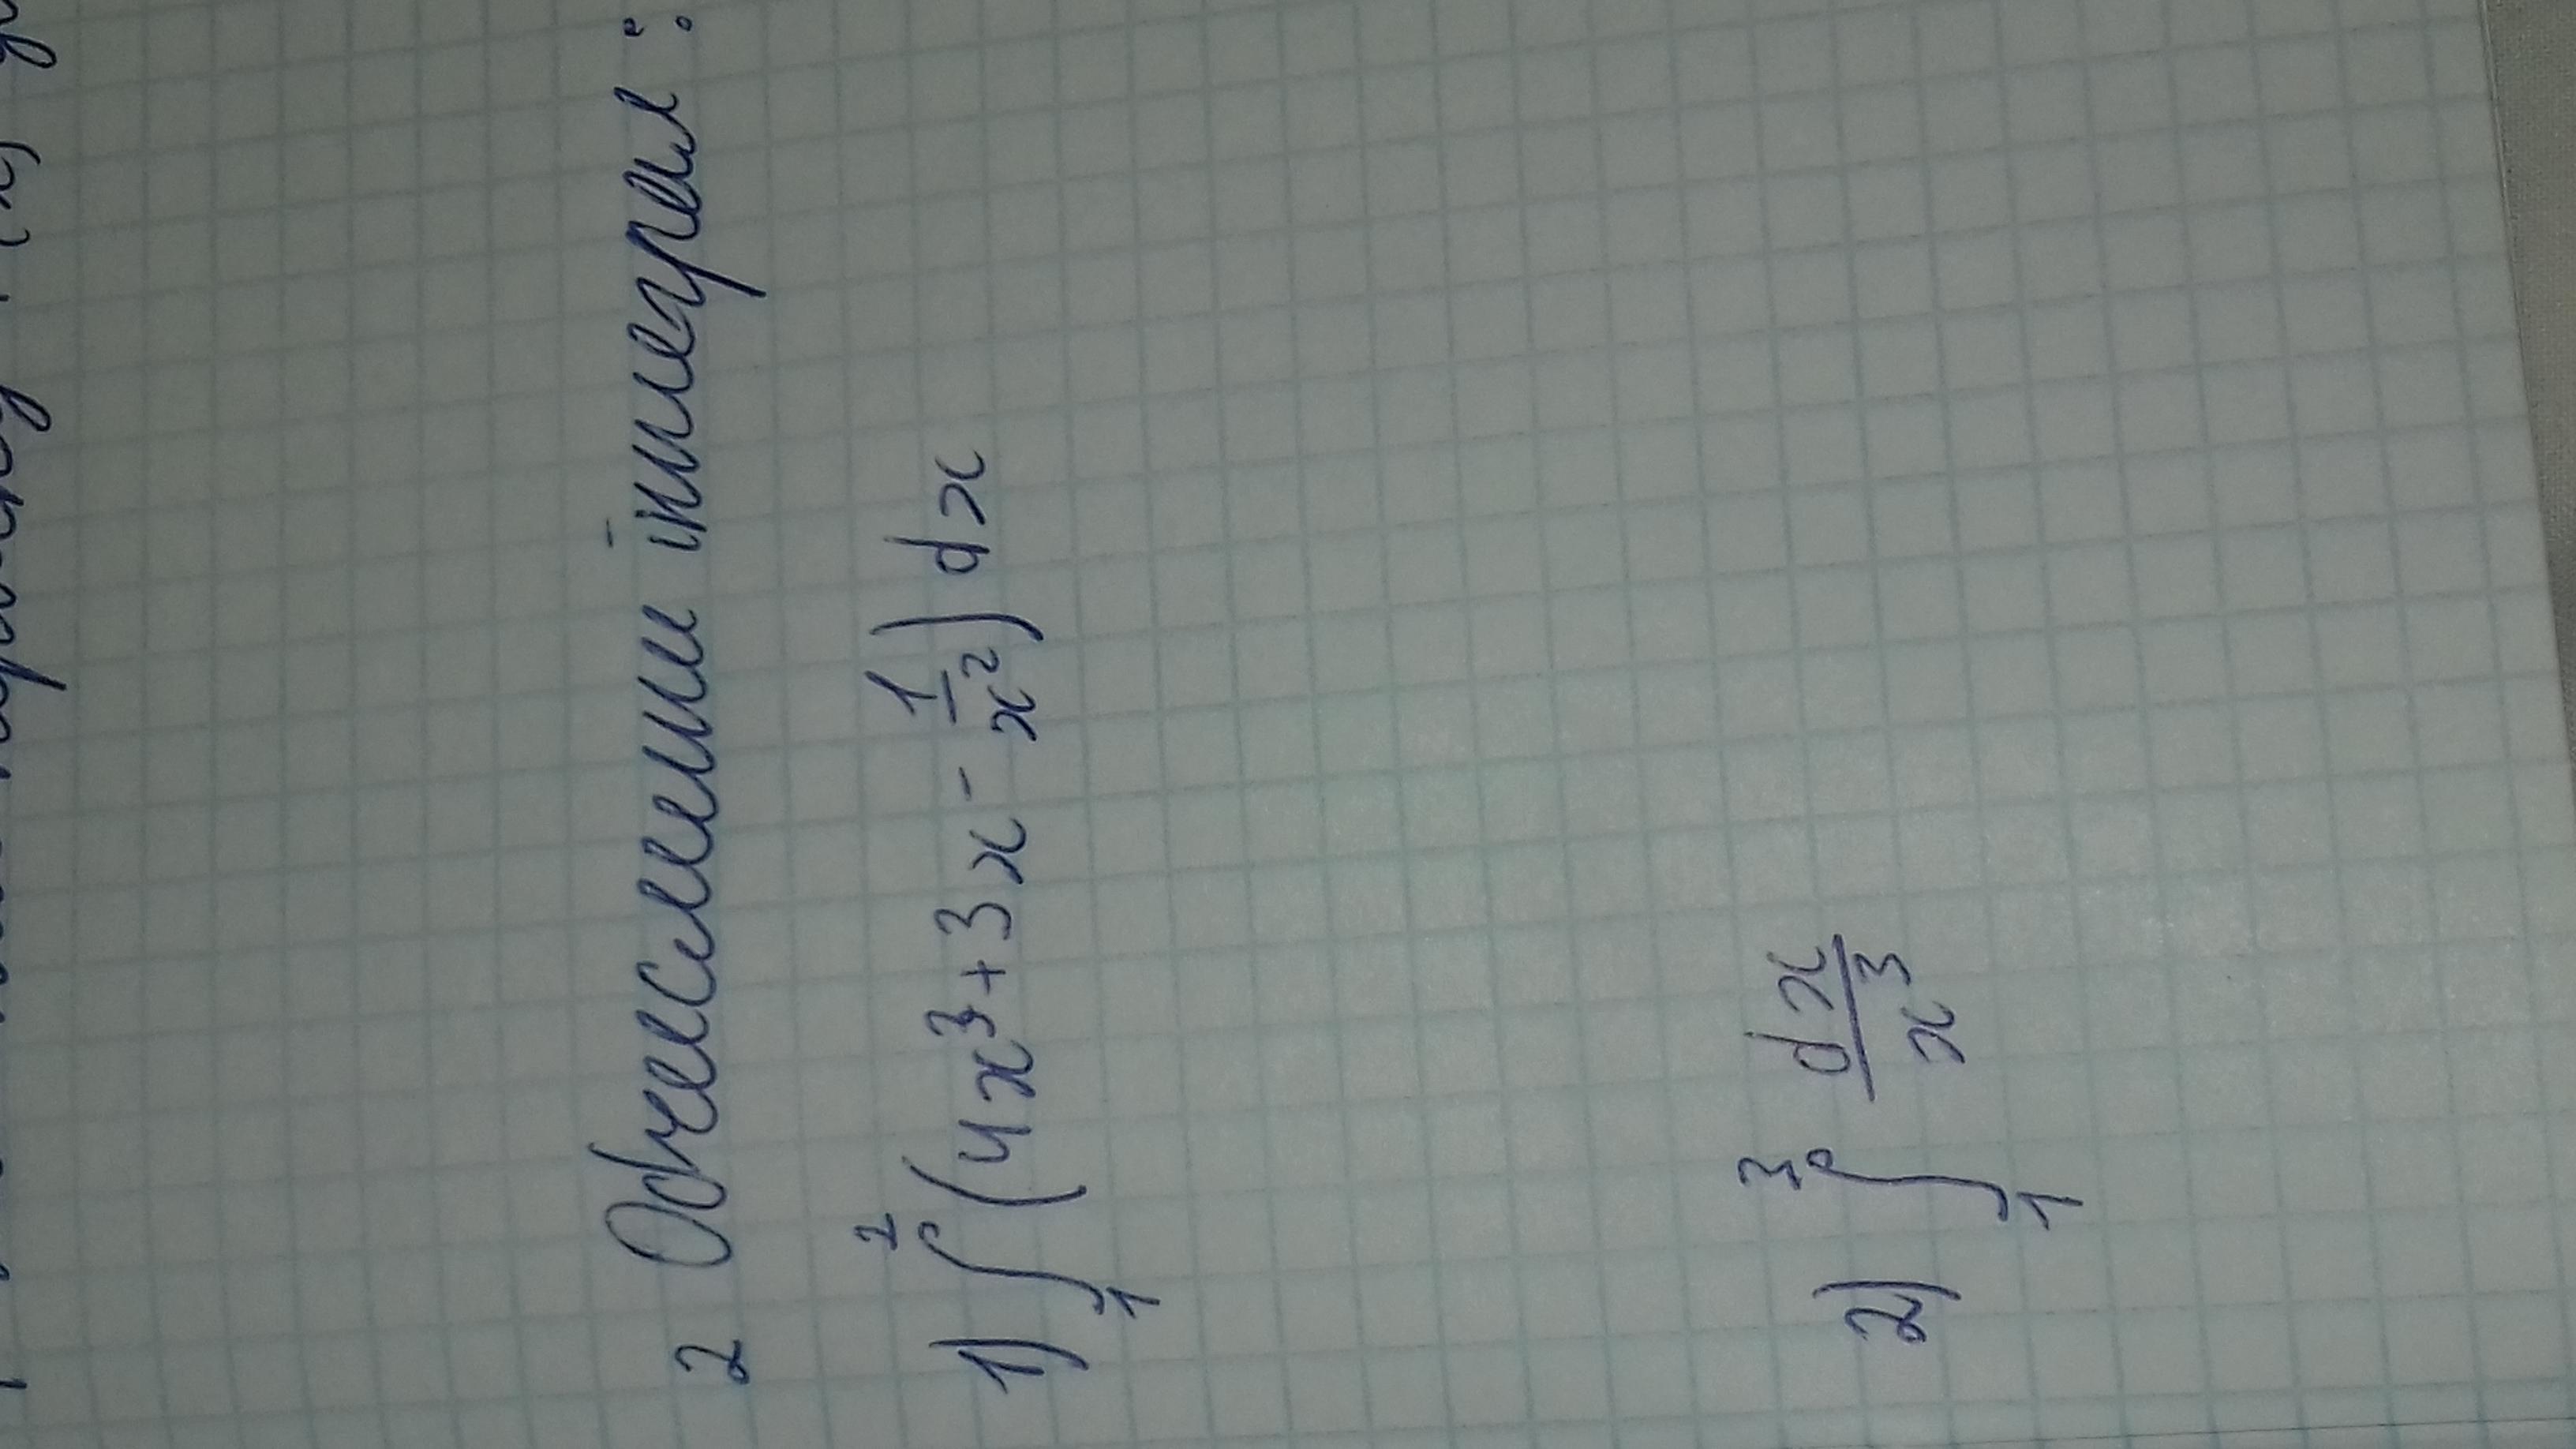 2 Обчислити інтеграл:
1) ∫₁² (4x³+3x - 1/x²) dx
2) ∫₁³ dx/x³